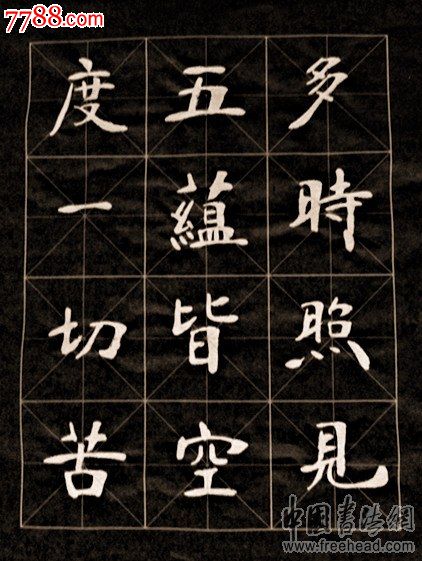 7788.com
多時照見
五蘊皆空
度一切苦
中国书法網
www.freehead.com